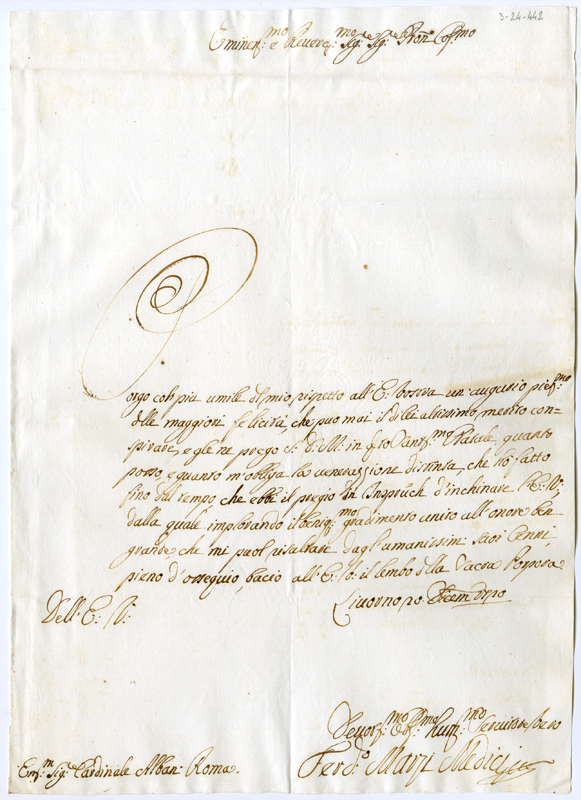 3-24-442
Eminen:mo e Reveren:mo Sig:re Sig:re Pron: Col:mo
Porgo col più umile del mio rispetto all'E: Vostra un augurio pien:mo
delle maggiori felicità, che può mai il di lei altissimo merito con-
spirare, e gle ne prego S: D: M: in q:to Sant:mo Natale, quanto
posso, e quanto m'obliga la venerazione distinta, che hò fatto
fino dal tempo che ebbi il pregio in Inspruch d'inchinare l'E: V:
dalla quale implorando il benig:mo gradimento unito all'onore ben
grande, che mi puol risaltare dagl'umanissimi suoi Cenni,
pieno d'ossequio, bacio all'E: V: il lembo della Sacra Porpora
Livorno 20 Dicem
Dell'E: V:
Devot:mo Obl:mo Servitore Vero
Em:mo Sig:re Cardinale Albani Roma.
Ferd:o Marzi Medici